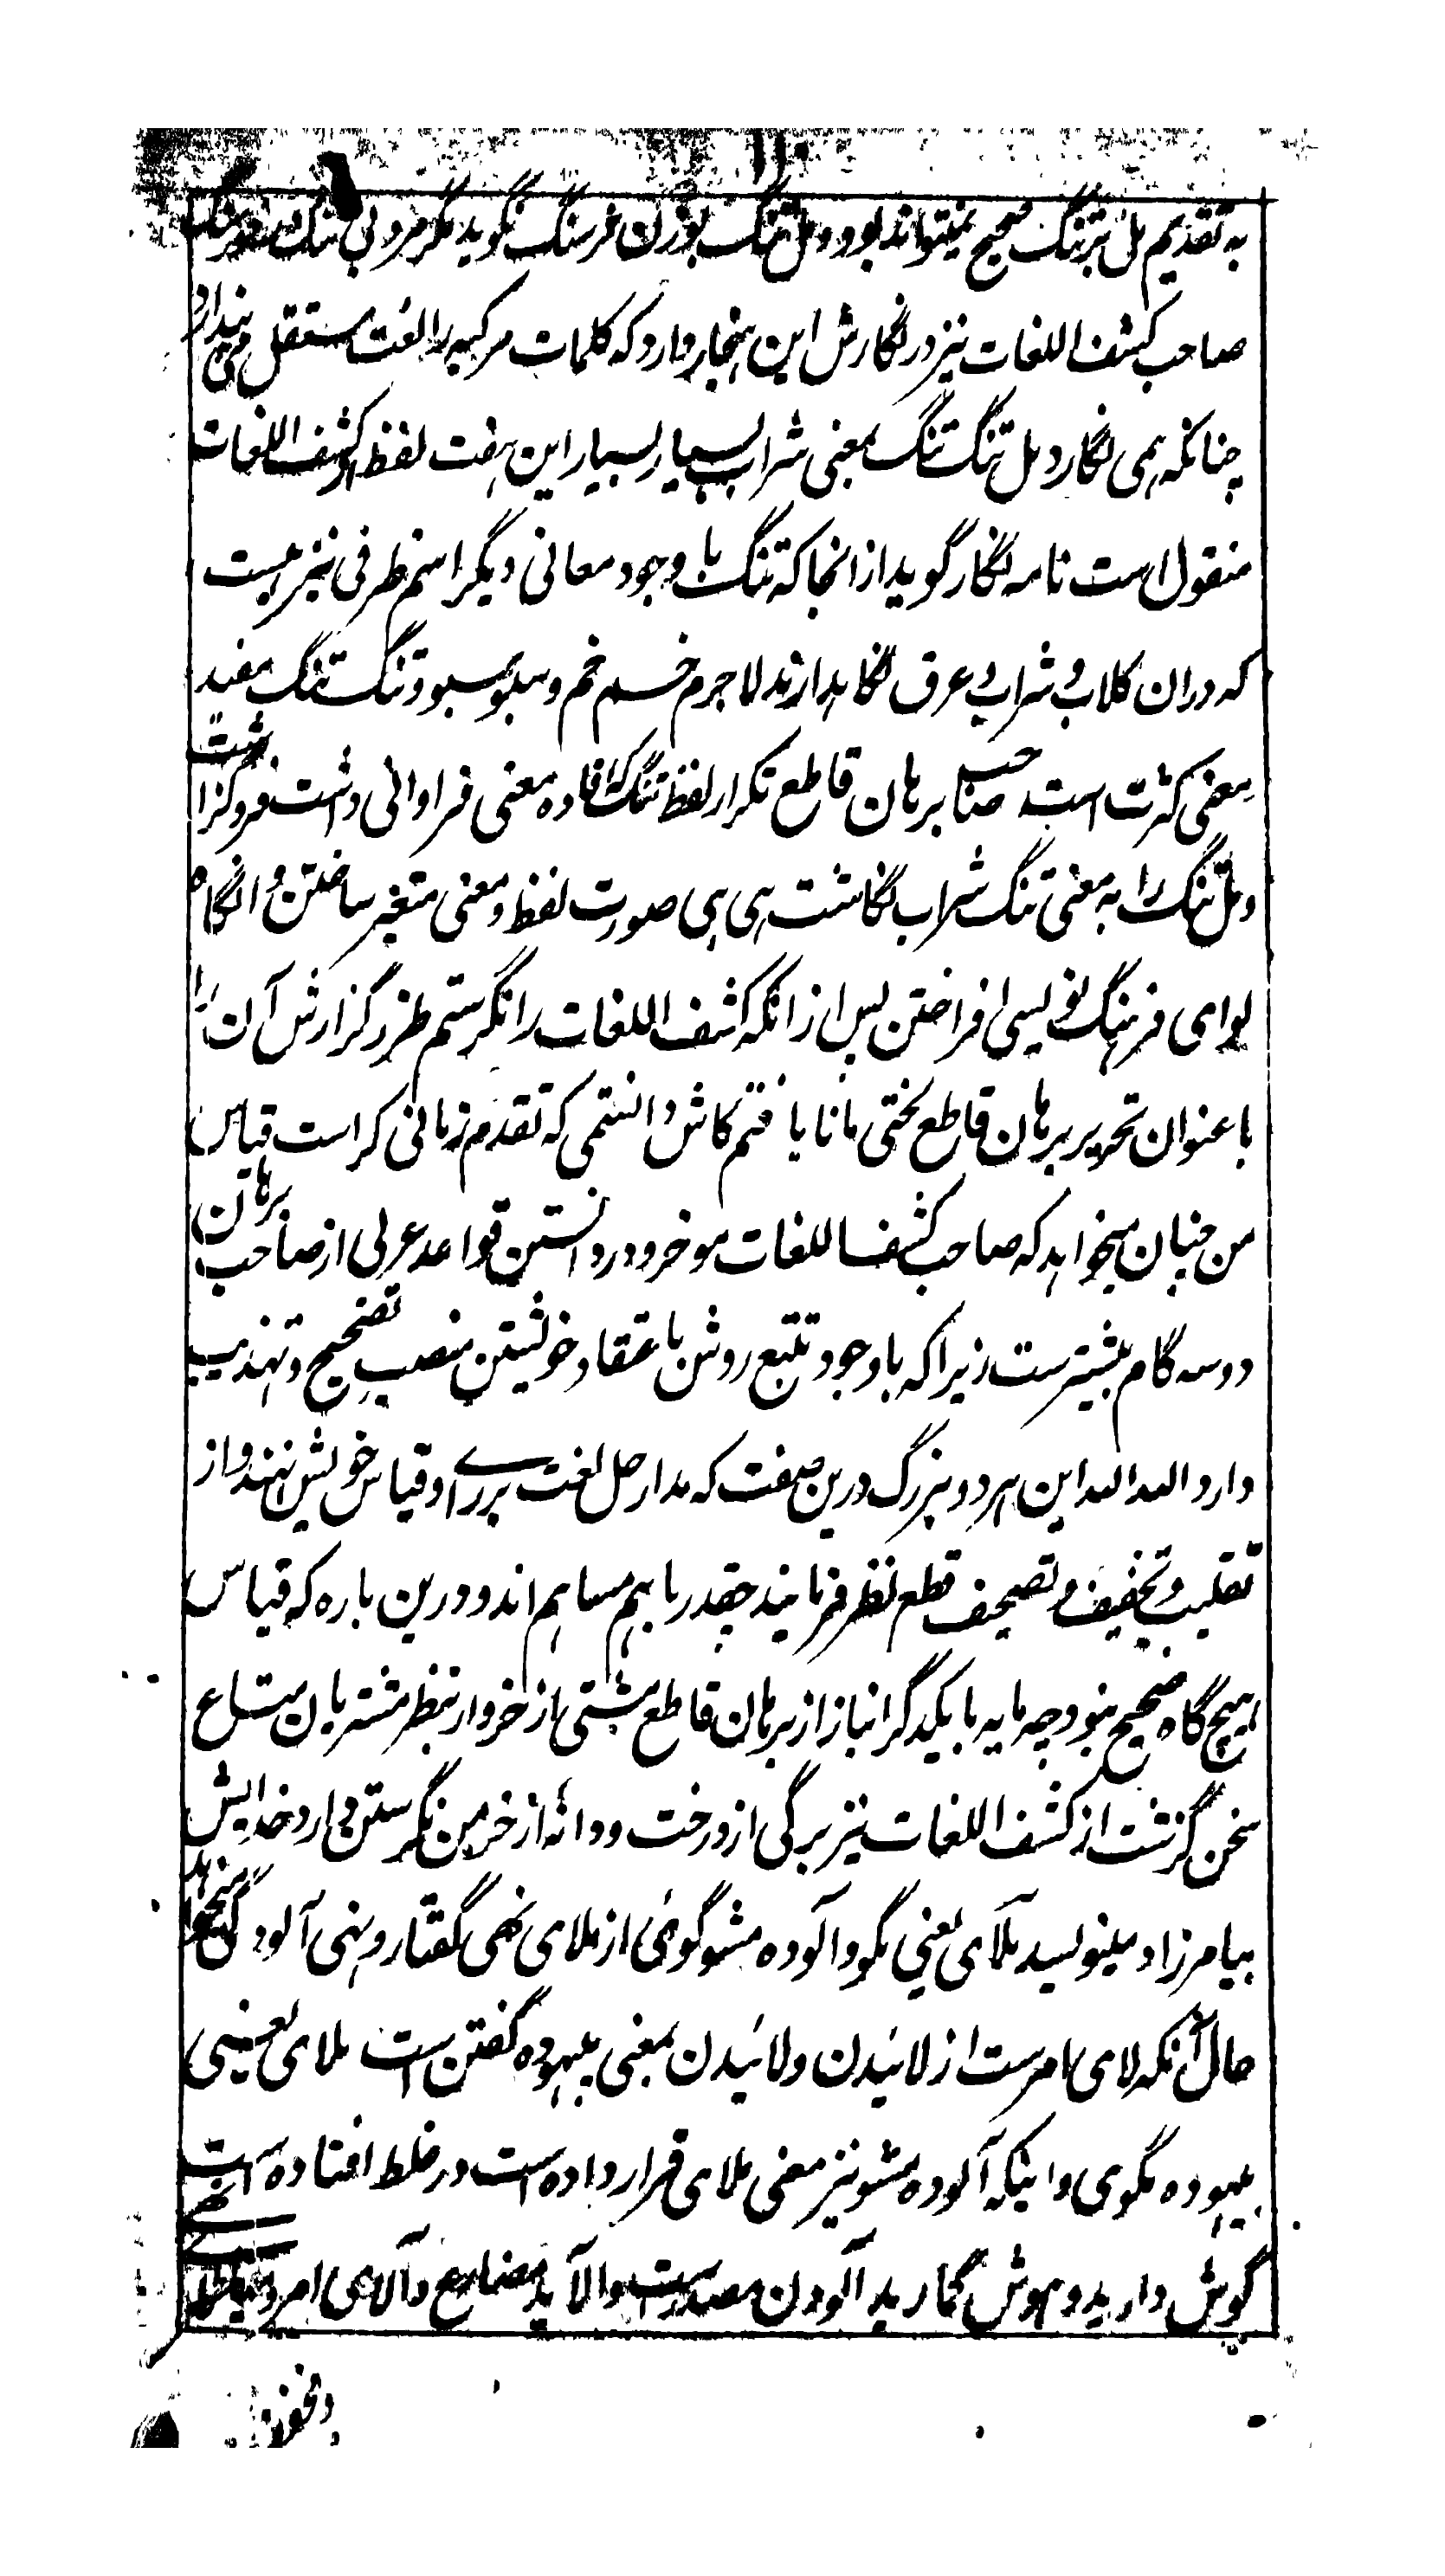 به تقدیم مل بر تنگ صحیح نمیتواند بود و مل تنگ بوزن خرسنگ نگوید مگر مردی
صاحب کشف اللغات نیز در نگارش این هنجار دارد که کلمات مرکبه را لغت مستقل می پندارد
چنانکه همی نگارد مل تنگ تنگ بمعنی شراب بسیار بسیار این هفت لفظ از کشف اللغات
منقول است نامه نگار گوید از انجا که تنگ با وجود معانی دیگر اسم ظرفی نیز هست
که دران گلاب و شراب و عرق نگاهدارند لاجرم خم خم و سبو سبو و تنگ تنگ مفید
معنی کثرت است صاحب برهان قاطع تکرار لفظ تنگ که افاده معنی فراوانی داشت فرو گزاشت
و مل تنگ را به معنی تنگ شراب نگاشت هی هی صورت لفظ و معنی متغیر ساختن و انگاه
لوای فرهنگ نویسی افراختن پس از انکه کشف اللغات را نگرستم طرز گزارش آن را
با عنوان تحریر برهان قاطع لختی مانا یافتم کاش دانستمی که تقدم زمانی کراست قیاس
من چنان میخواهد که صاحب کشف اللغات موخر و در دانستن قواعد عربی از صاحب برهان
دو سه گام پیشترست زیرا که باوجود تتبع روش باعتقاد خویشتن منصب تصحیح و تهذیب
دارد الله الله این هر دو بزرگ درین صفت که مدار حل لغت بر راے و قیاس خویش نهند و از
تقلیب و تخفیف و تصحیف قطع نظر فرمایند چقدر با هم مساهم اند و درین باره که قیاس
هیچ گاه صحیح نبود چه مایه با یکدگر انباز از برهان قاطع مشتی از خروار بنظر مشتریان متاع
سخن گزشت از کشف اللغات نیز برگی از درخت و دانهٔ از خرمن نگرستن دارد خدایش
بیامرزاد مینویسد ملای یعنی مگو و آلوده مشو گوئی از ملای نهی گفتار و نهی آلودگی میخواهد
حال آنکه لای امرست از لائیدن و لائیدن بمعنی بیهوده گفتن است ملای یعنی
بیهوده مگوی و اینکه آلوده مشو نیز معنی ملای قرار داده است در غلط افتاده است
گوش دارید و هوش گمارید آلودن مصدرست و الاید مضارع و آلای امر